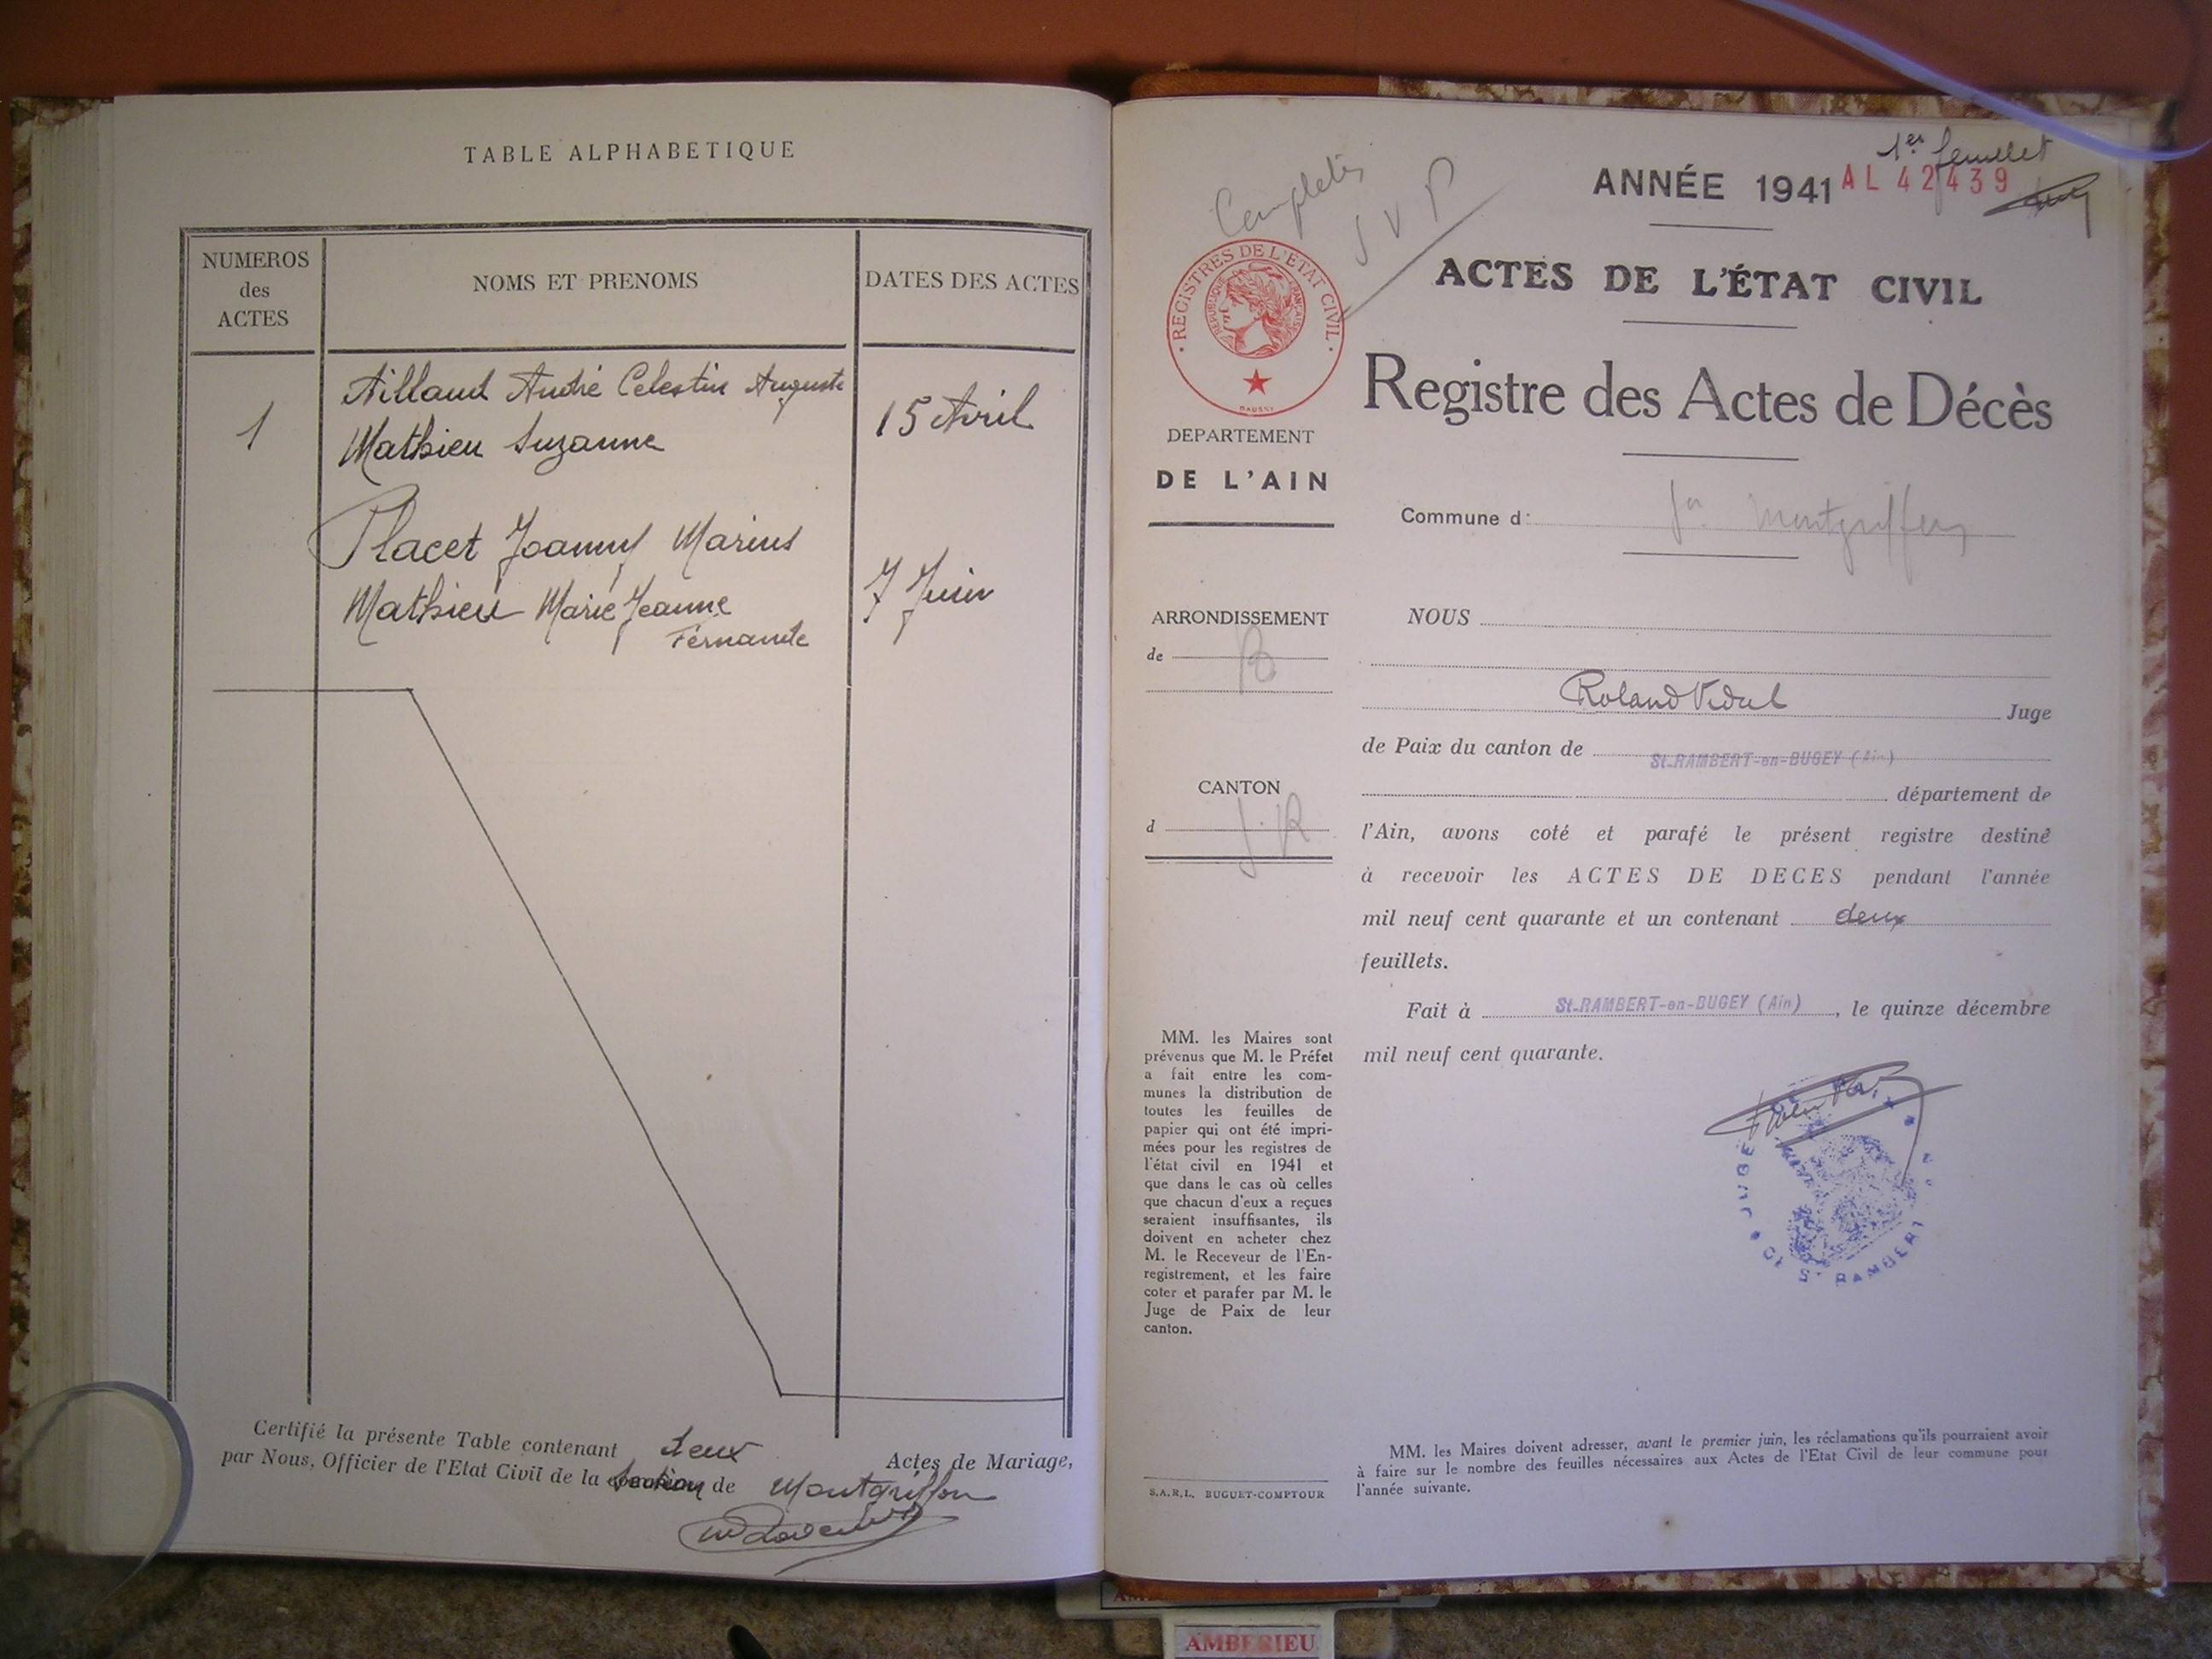 TABLE ALPHABETIQUE
NUMEROS
des
ACTES
NOMS ET PRENOMS
DATES DES ACTES
1
Aillaud André Celestin Auguste
Mathieu Suzanne
15 Avril
Placet Joanny Marius
Mathieu Marie Jeanne
Fernande
7 Juin
Certifié la présente Table contenant deux Actes de Mariage,
par Nous, Officier de l'Etat Civil de la section de Montgriffon
Complèter
S V P
1er feuillet
ANNÉE 1941
AL 42439
REGISTRES DE L'ÉTAT CIVIL
REPUBLIQUE FRANÇAISE
ACTES DE L'ÉTAT CIVIL
Registre des Actes de Décès
DEPARTEMENT
DE L'AIN
Commune d Montgriffon
ARRONDISSEMENT
de B
CANTON
d S.R
NOUS
Roland Vidal Juge
de Paix du canton de St-RAMBERT-en-BUGEY (Ain)
département de
l'Ain, avons coté et parafé le présent registre destiné
à recevoir les ACTES DE DECES pendant l'année
mil neuf cent quarante et un contenant deux
feuillets.
Fait à St-RAMBERT-en-BUGEY (Ain), le quinze décembre
mil neuf cent quarante.
MM. les Maires sont
prévenus que M. le Préfet
a fait entre les com-
munes la distribution de
toutes les feuilles de
papier qui ont été impri-
mées pour les registres de
l'état civil en 1941 et
que dans le cas où celles
que chacun d'eux a reçues
seraient insuffisantes, ils
doivent en acheter chez
M. le Receveur de l'En-
registrement, et les faire
coter et parafer par M. le
Juge de Paix de leur
canton.
S.A.R.L. BUGUET-COMPTOUR
MM. les Maires doivent adresser, avant le premier juin, les réclamations qu'ils pourraient avoir
à faire sur le nombre des feuilles nécessaires aux Actes de l'Etat Civil de leur commune pour
l'année suivante.
AMBERIEU